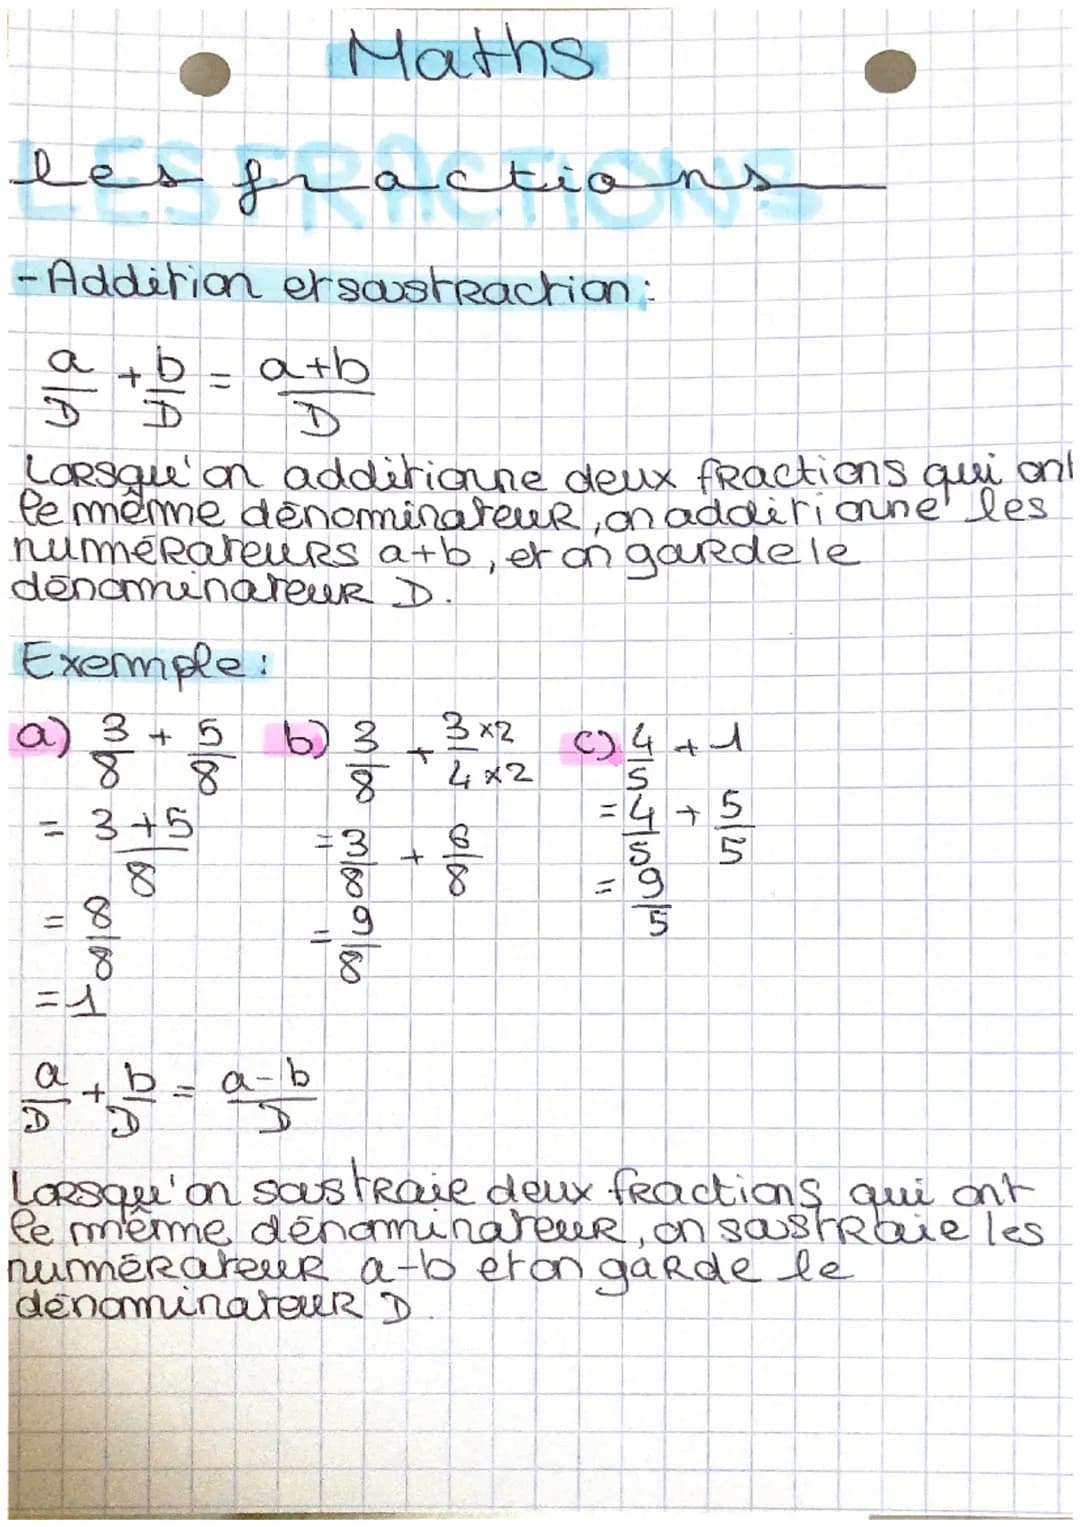 Maths
LES FRACTIONS
les fractions
- Addition et soustraction :
a/D + b/D = a+b/D
Lorsqu'on additionne deux fractions qui ont
le même dénominateur, on additionne les
numérateurs a+b, et on garde le
dénominateur D.
Exemple :
a) 3/8 + 5/8
= 3+5/8
= 8/8
= 1
b) 3/8 + 3×2/4×2
= 3/8 + 6/8
= 9/8
c) 4/5 + 1
= 4/5 + 5/5
= 9/5
a/D + b/D = a-b/D
Lorsqu'on soustraie deux fractions qui ont
le même dénominateur, on soustraie les
numérateur a-b et on garde le
dénominateur D.